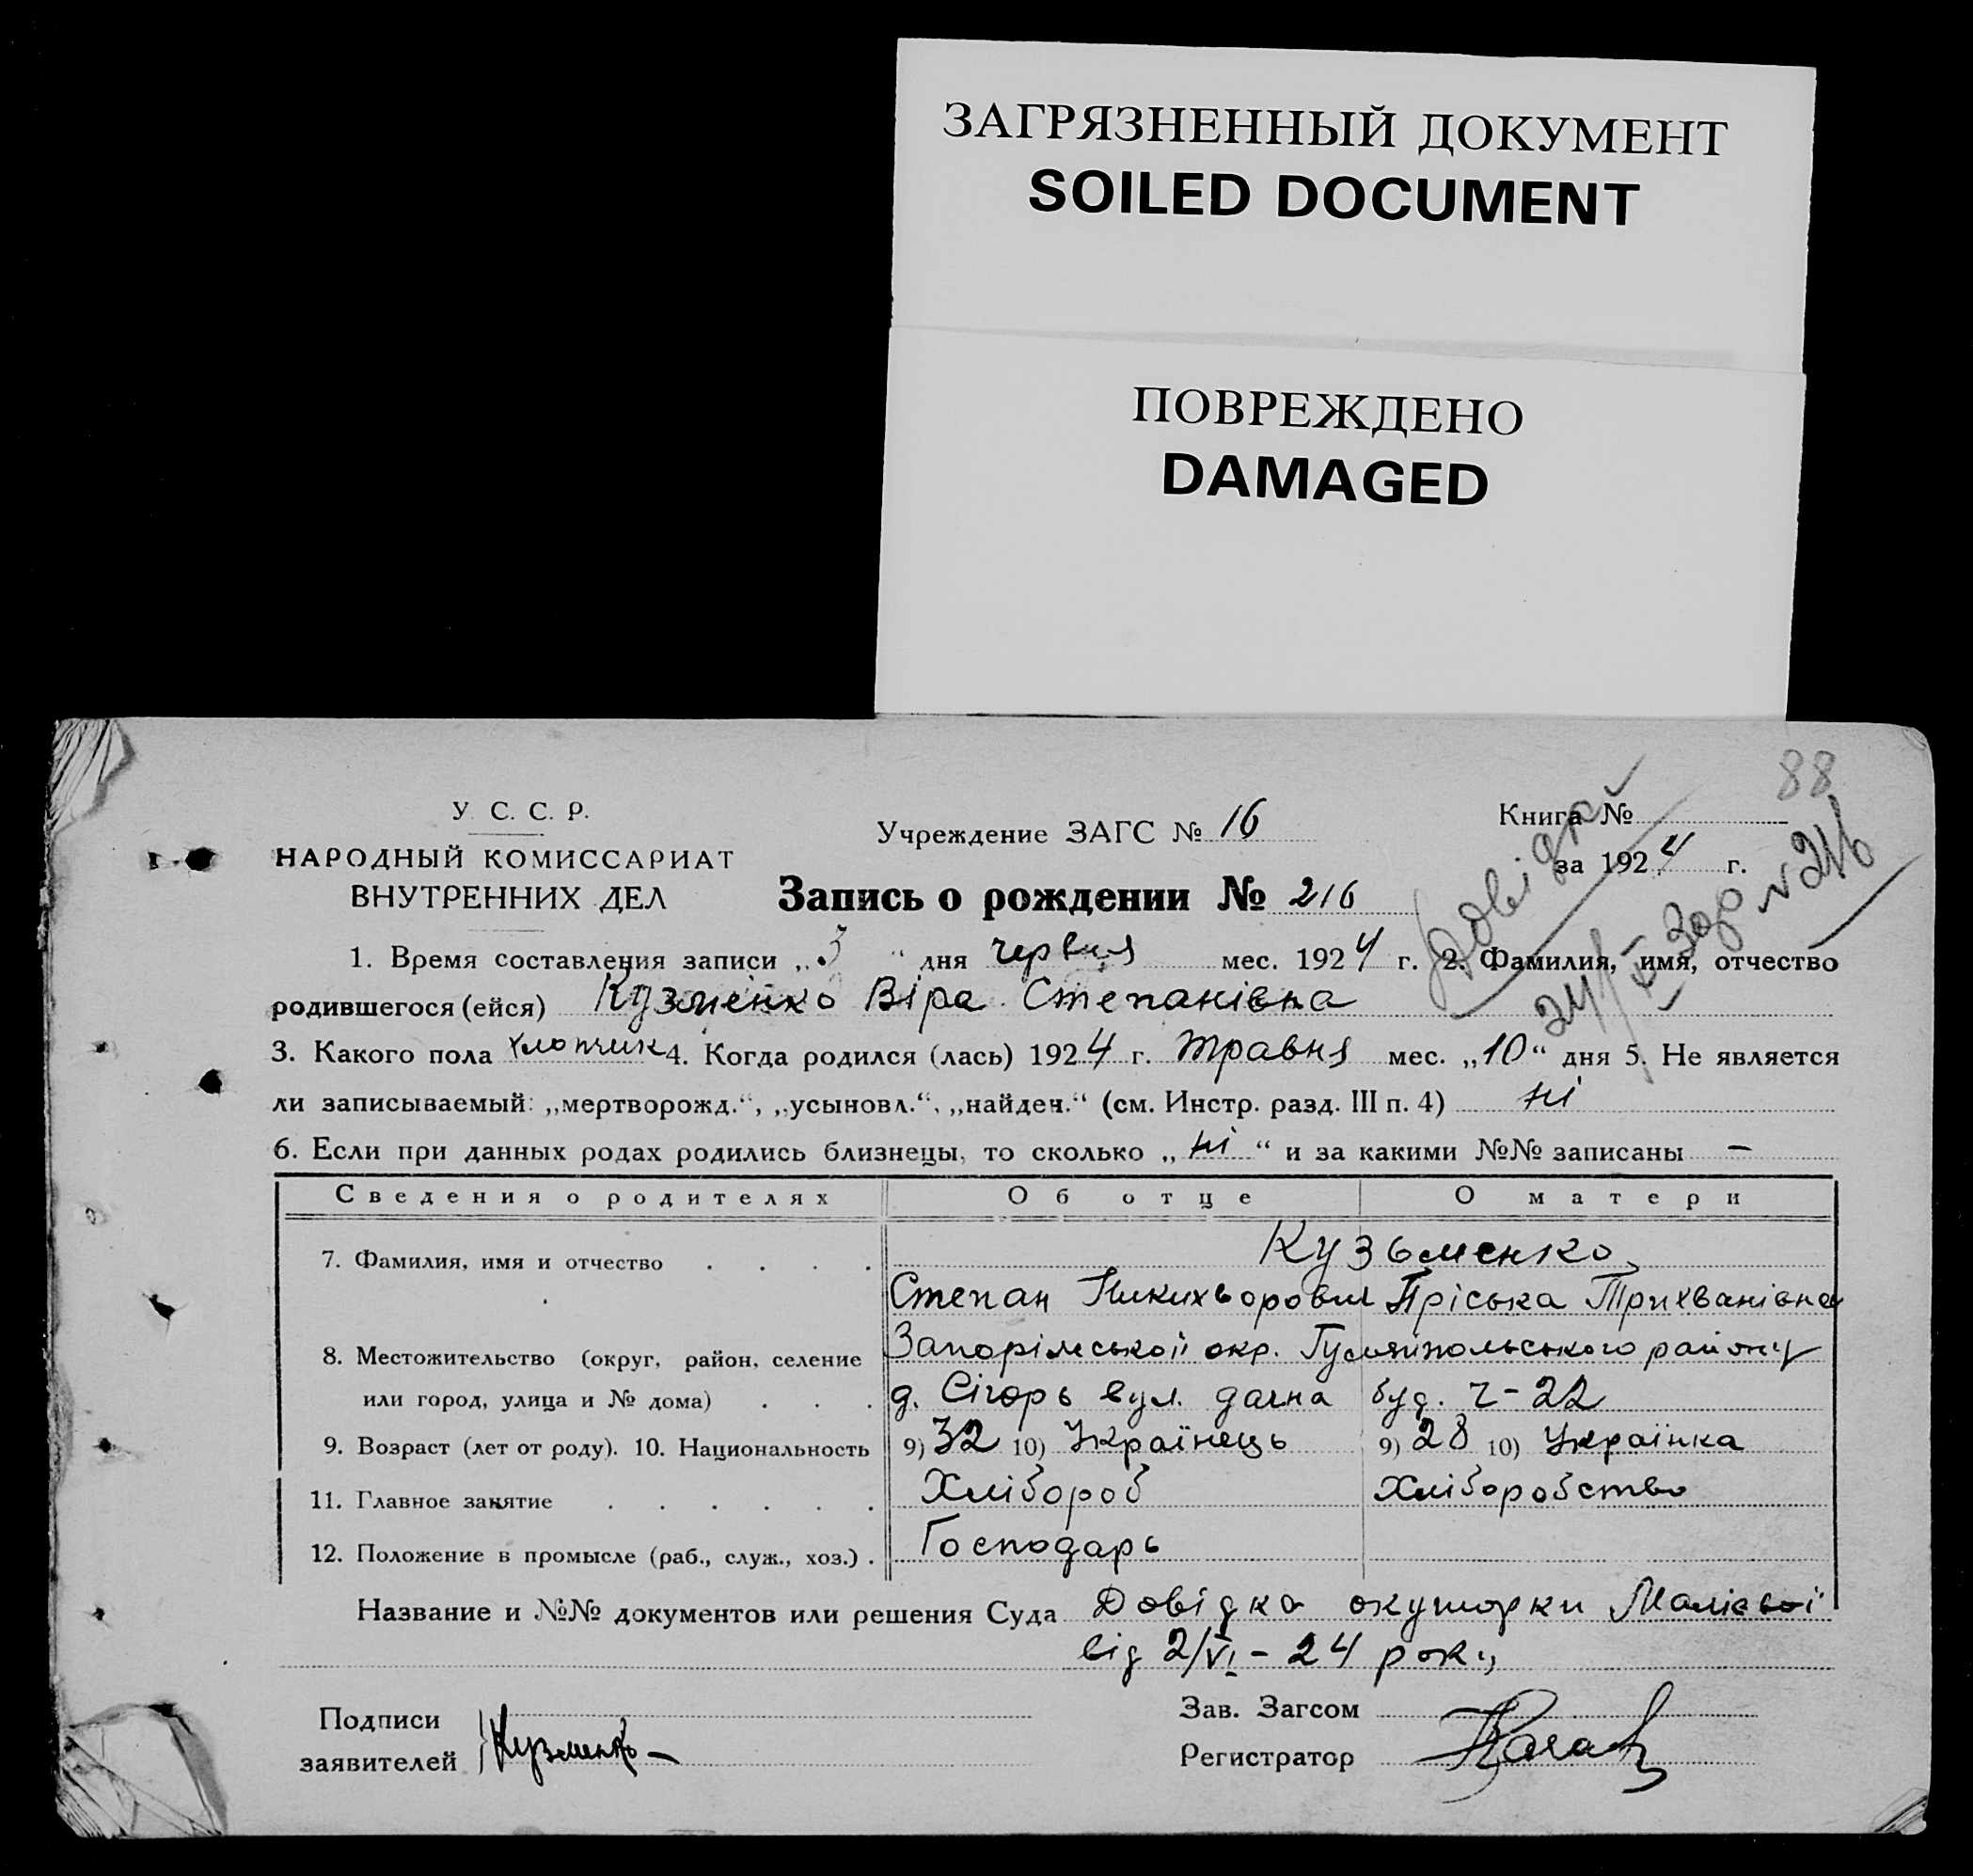 ЗАГРЯЗНЕННЫЙ ДОКУМЕНТ
SOILED DOCUMENT
ПОВРЕЖДЕНО
DAMAGED
88
У. С. С. Р.
НАРОДНЫЙ КОМИССАРИАТ
ВНУТРЕННИХ ДЕЛ
Учреждение ЗАГС № 16
Книга №
за 1924 г.
Запись о рождении № 216
Довідка
24/ № 216
1. Время составления записи „3" дня червня мес. 1924 г. 2. Фамилия, имя, отчество
родившегося (ейся) Кузменко Віра Степанівна
3. Какого пола хлопчик 4. Когда родился (лась) 1924 г. травня мес. „10" дня 5. Не является
ли записываемый: „мертворожд.", „усыновл.", „найден." (см. Инстр. разд. III п. 4) ні
6. Если при данных родах родились близнецы, то сколько „ні" и за какими №№ записаны –
Сведения о родителях Об отце О матери
7. Фамилия, имя и отчество Кузьменко
Степан Никихворович Пріська Трихванівна
8. Местожительство (округ, район, селение Запоріжської окр. Гуляйпольського району
или город, улица и № дома) д. вул. дачна буд. ч-22
9. Возраст (лет от роду). 10. Национальность 9) 32 10) Українець 9) 28 10) Українка
11. Главное занятие Хлібороб Хліборобство
12. Положение в промысле (раб., служ., хоз.) Господарь
Название и №№ документов или решения Суда Довідка окушорки
від 2/VI – 24 року
Подписи
заявителей Кузменко
Зав. Загсом
Регистратор